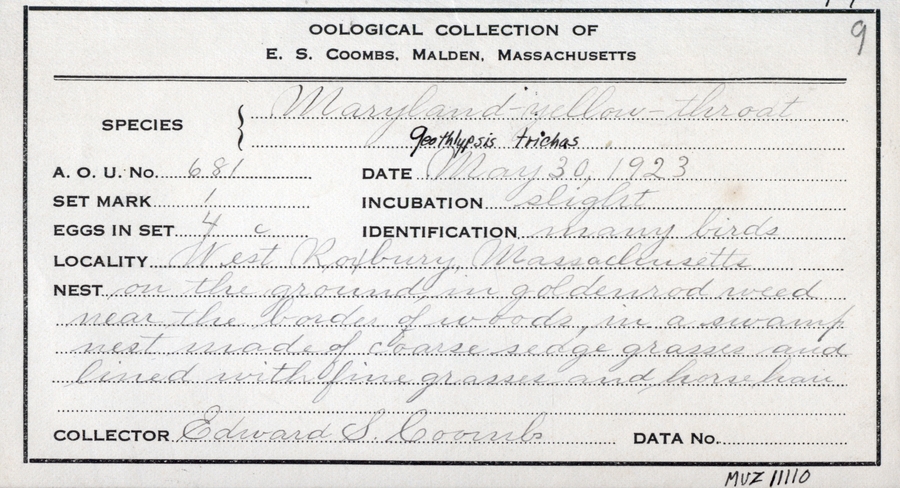 OOLOGICAL COLLECTION OF
9
E. S. COOMBS, MALDEN, MASSACHUSETTS
SPECIES { Maryland-yellow-throat
geothlypsis trichas
A. O. U. No. 681 DATE May 30, 1923
SET MARK 1 INCUBATION slight
EGGS IN SET 4 c IDENTIFICATION many birds
LOCALITY West Roxbury, Massachusetts
NEST on the ground, in goldenrod weed
near the border of woods, in a swamp
nest made of coarse sedge grasses and
lined with fine grasses and horse hair
COLLECTOR Edward S. Coombs DATA No.
MVZ 11110